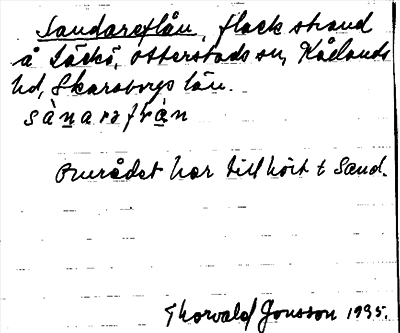 Sandareflån, flack strand
å Läckö, Otterstads sn, Kållands
hd, Skaraborgs län.
sànarafràn
Området har tillhört t Sand.
Thorvald Jonsson 1935.